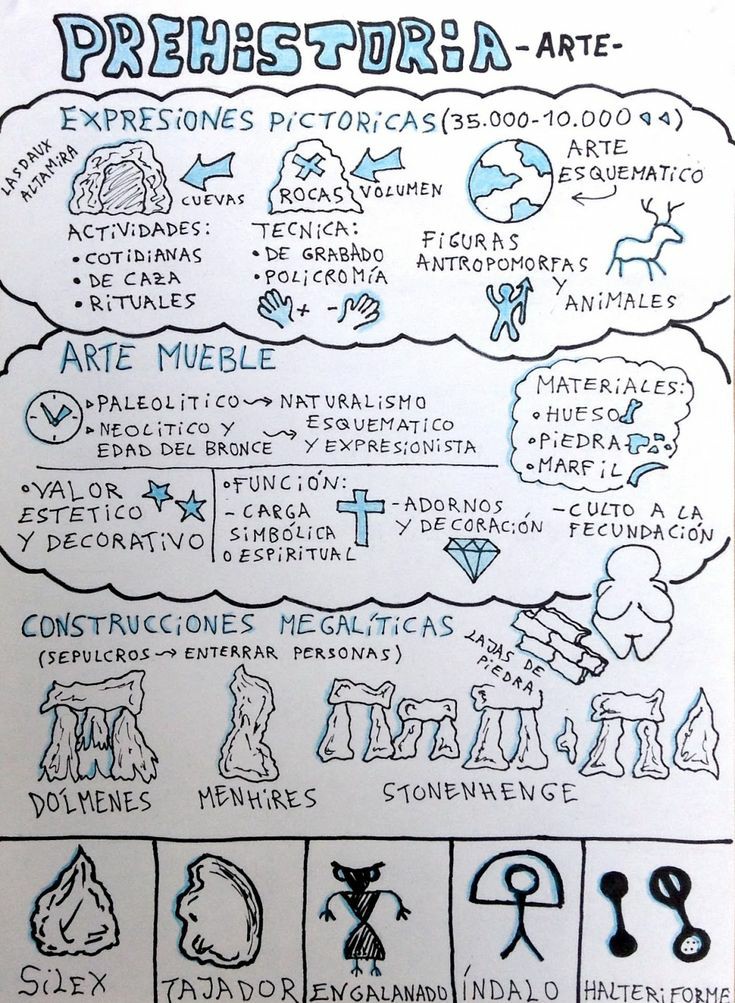 PREHISTORIA -ARTE-
EXPRESIONES PICTORICAS (35.000-10.000 ◁◁)
LASDAUX
ALTAMIRA
CUEVAS
ROCAS
VOLUMEN
ARTE
ESQUEMATICO
ACTIVIDADES:
• COTIDIANAS
• DE CAZA
• RITUALES
TECNICA:
• DE GRABADO
• POLICROMÍA
+ -
FIGURAS
ANTROPOMORFAS
Y
ANIMALES
ARTE MUEBLE
▹PALEOLITICO → NATURALISMO
▹NEOLITICO Y
EDAD DEL BRONCE → ESQUEMATICO
Y EXPRESIONISTA
MATERIALES:
• HUESO
• PIEDRA
• MARFIL
• VALOR
ESTETICO
Y DECORATIVO
• FUNCIÓN:
- CARGA
SIMBÓLICA
O ESPIRITUAL
- ADORNOS
Y DECORACIÓN
- CULTO A LA
FECUNDACIÓN
CONSTRUCCIONES MEGALÍTICAS
(SEPULCROS → ENTERRAR PERSONAS)
LAJAS DE
PIEDRA
DÓLMENES
MENHIRES
STONENHENGE
SILEX
TAJADOR
ENGALANADO
ÍNDALO
HALTERIFORME